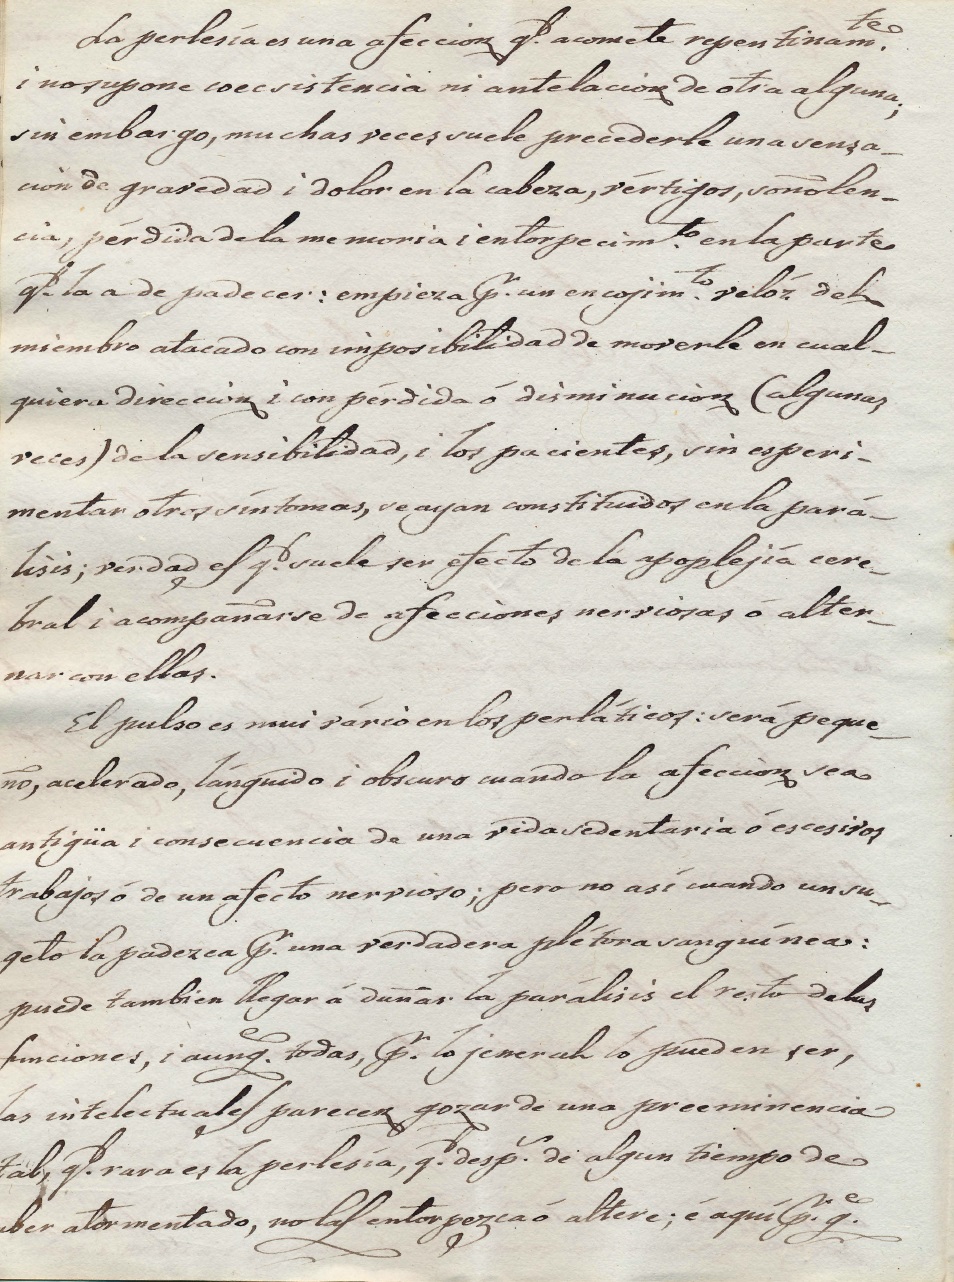 La perlesía es una afeccion q.e acomete repentinam.te
i no supone coecsistencia ni antelacion de otra alguna;
sin embargo, muchas veces suele precederle una sensa-
cion de gravedad i dolor en la cabeza, vértigos, soñolen-
cia, pérdida de la memoria i entorpecim.to en la parte
q.e la a de padecer: empieza p.r un encojim.to velóz del
miembro atacado con imposibilidad de moverle en cual-
quiera direccion i con pérdida ó disminucion (algunas
veces) de la sensibilidad, i los pacientes, sin esperi-
mentar otros síntomas, se ayan constituidos en la pará-
lisis; verdad es q.e suele ser efecto de la apoplejía cere-
bral i acompañarse de afecciones nerviosas ó alter-
nar con ellas.
El pulso es mui vário en los perláticos: será peque-
ño, acelerado, lánguido i obscuro cuando la afeccion sea
antigüa i consecuencia de una vida sedentaria ó escesivos
trabajos ó de un afecto nervioso; pero no así cuando un su-
geto la padezca p.r una verdadera plétora sanguínea:
puede tambien llegar á dañar la parálisis el resto de las
funciones, i aunq.e todas, p.r lo jeneral lo pueden ser,
las intelectuales parecen gozar de una preeminencia
tal, q.e rara es la perlesía, q.e desp.s de algun tiempo de
aber atormentado, no las entorpezca ó altere; é aquí p.r q.e